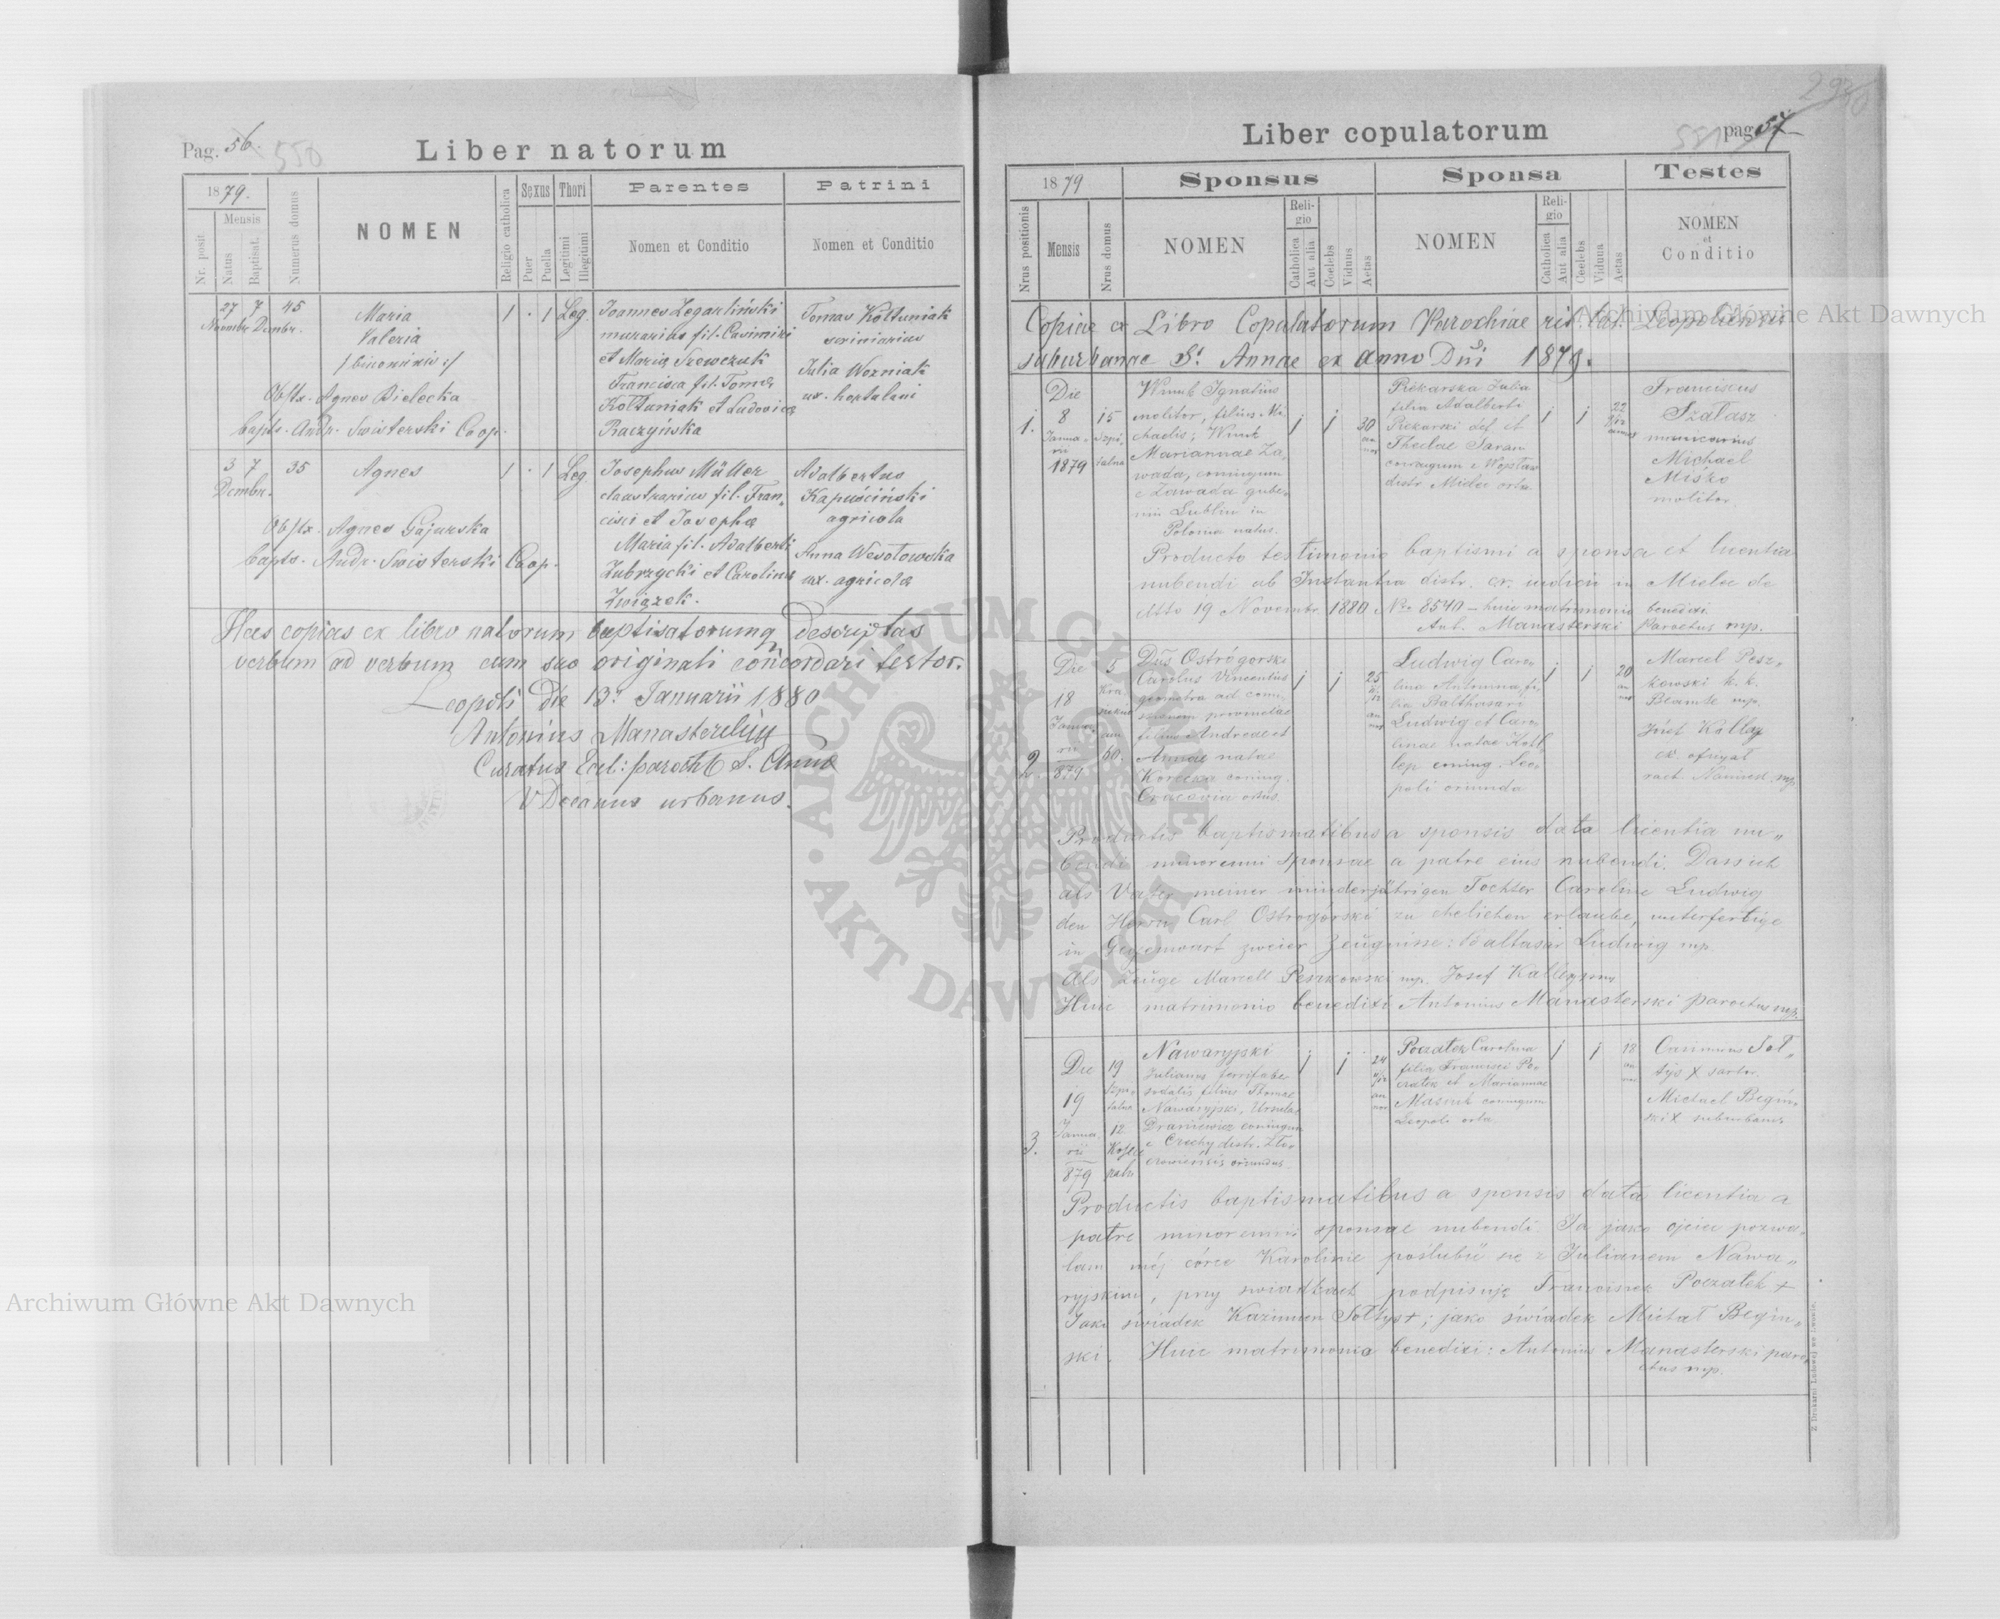 Pag. 56. 550
Liber natorum
1879.
Mensis
Nr. posit
Natus
Baptisat.
Numerus domus
NOMEN
Religio catholica
Sexus
Puer
Puella
Thori
Legitimi
Illegitimi
Parentes
Nomen et Conditio
Patrini
Nomen et Conditio
27 7 45
Novembr. Dembr.
Maria
Valeria
/binominis:/
Obstx. Agnes Bielecka
bapts. Andr. Swisterski Coop.
1 · 1 Leg.
Joannes Zegarliński
murarius fil. Casimiri
et Maria Szewczuk
Francisca fil. Tomæ
Kołtuniak et Ludovica
Raczyńska
Tomas Kołtuniak
scriniarius
Julia Wozniak
ux. hortulani
3 7 35
Dembr.
Agnes
Obstx. Agnes Gajurska
bapts. Andr. Swisterski Coop.
1 · 1 Leg
Josephus Müller
claustrarius fil. Fran„
cisci et Josepha
Maria fil. Adalberti
Zubrzycki et Carolina
Związek.
Adalbertus
Kapuściński
agricola
Anna Wesołowska
ux. agricolæ
Has copias ex libro natorum baptisatorumq descriptas
verbum ad verbum cum suo originali concordari testor.
Leopoli die 13. Januarii 1880
Antonius Manasterski
Curatus Eccl: paroch S. Annæ
VDecanus urbanus.
Liber copulatorum
551 pag 57
1879
Nrus positionis
Mensis
Nrus domus
Sponsus
NOMEN
Religio
Catholica
Aut alia
Coelebs
Viduus
Aetas
Sponsa
NOMEN
Religio
Catholica
Aut alia
Coelebs
Vidua
Aetas
Testes
NOMEN
et
Conditio
Copiae ex Libro Copulatorum Parochiae rit. lat. Leopoliensis
suburbanae St. Annae ex anno Dni 1879.
1.
Die
8
Januarii
1879
15
Szpitalna
Ignatius
molitor, filius Mi
chaelis,
Mariannae Za„
wada, coniugum
e Zawada guber„
nii Lublin in
Polonia natus.
1 1 30
Piekarska Julia
filia Adalberti
Piekarski et
Theclae
coniugum
1 1 22
Franciscus
Szałasz
Michael
Misko
molitor
Producto testimonio baptismi a sponsa et licentia
nubendi ab Instantia distr. in Mielec de
dtto 19 Novembr. 1880 Nro 8540 – huic matrimonio benedixi
Ant. Manasterski Paroctus mp.
2
Die
18
Januarii
879
5
Ostrógorski
Carolus Vincentius
geometra
filius Andreae et
Annae natae
coniug.
Cracovia ortus
1 1 25
Ludwig Caro
lina Antonina fi„
lia Balthasari
Ludwig et Caro
linae natae
coniug. Leo„
poli oriunda
1 1 20
Marcel Pesz„
kowski k. k.
Beamte mp.
Productis baptismatibus a sponsis data licentia nu„
bendi minorenni sponsae a patre eius nubendi. Dass ich
als Vater meiner minderjährigen Tochter Caroline Ludwig
den Herrn Carl Ostrogórski zu ehelichen erlaube, unterfertige
in Gegenwart zweier Zeügnisse: Baltasar Ludwig mp.
Als Zeüge Marcell Peszkowski mp. Josef Kallay mp
Huic matrimonio benedixi Antonius Manasterski paroctus mp.
3.
Die
19
Januarii
879
19
Szpitalna
12
Nawaryjski
Julianus
sodalis filius Thomae
Nawaryjski, Ursulae
coniugum
oriundus
1 1 24
Początek Carolina
filia Francisci Po„
czatek et Mariannae
Mazurk coniugum
Leopoli orta
1 1 18
Casimirus Soł„
tys X sartor.
Michael Begiń„
ski X suburbanus
Productis baptismatibus a sponsis data licentia a
patre minorenni sponsae nubendi. Ja jako ojciec pozwa„
lam mej córce Karolinie poślubić się z Julianem Nawa„
ryjskim, przy swiadkach podpisuję Franciszek Początek +
Jako świadek Kazimierz Sołtys+; jako świadek Michał Begin„
ski. Huic matrimonio benedixi: Antonius Manasterski paro„
ctus mp.
Z Drukarni Ludowej we Lwowie.
ARCHIWUM GŁÓWNE · AKT DAWNYCH ·
Archiwum Główne Akt Dawnych
Archiwum Główne Akt Dawnych